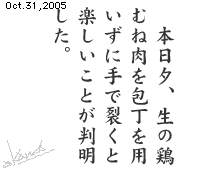 Oct.31,2005
本日夕、生の鶏
むね肉を包丁を用
いずに手で裂くと
楽しいことが判明
した。